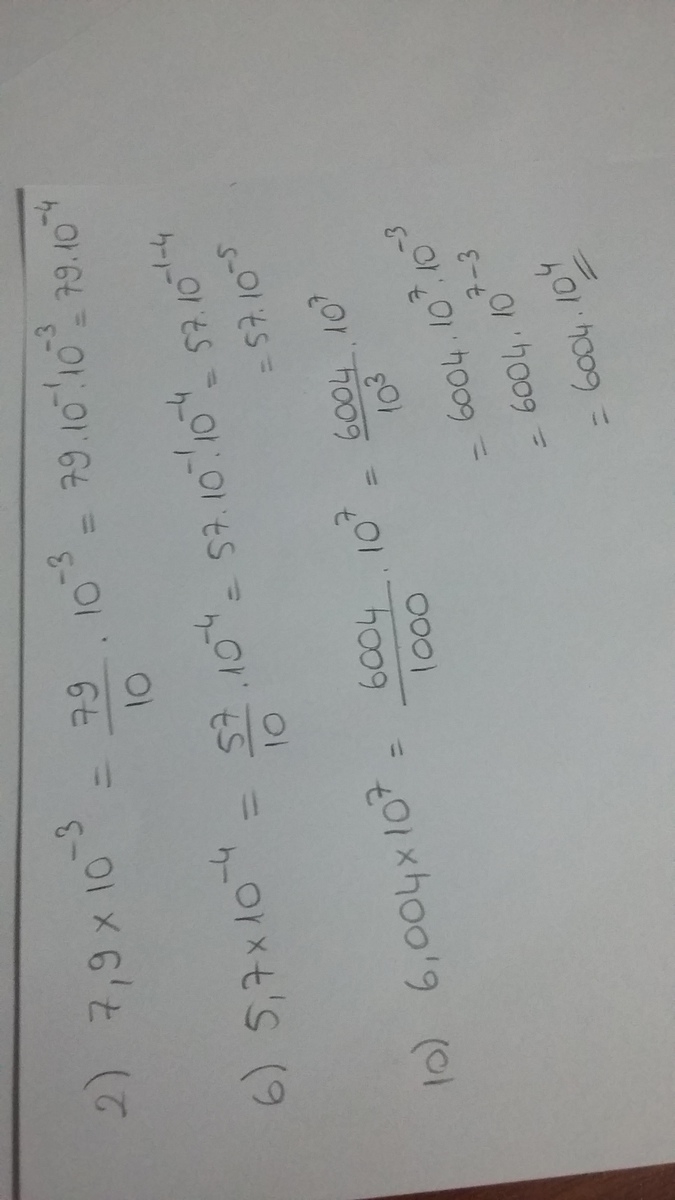 2) 7,9 × 10⁻³ = 79/10 . 10⁻³ = 79.10⁻¹.10⁻³ = 79.10⁻⁴
6) 5,7 × 10⁻⁴ = 57/10 .10⁻⁴ = 57.10⁻¹.10⁻⁴ = 57.10⁻¹⁻⁴
= 57.10⁻⁵
10) 6,004 × 10⁷ = 6004/1000 . 10⁷ = 6004/10³ . 10⁷
= 6004.10⁷.10⁻³
= 6004.10⁷⁻³
= 6004.10⁴